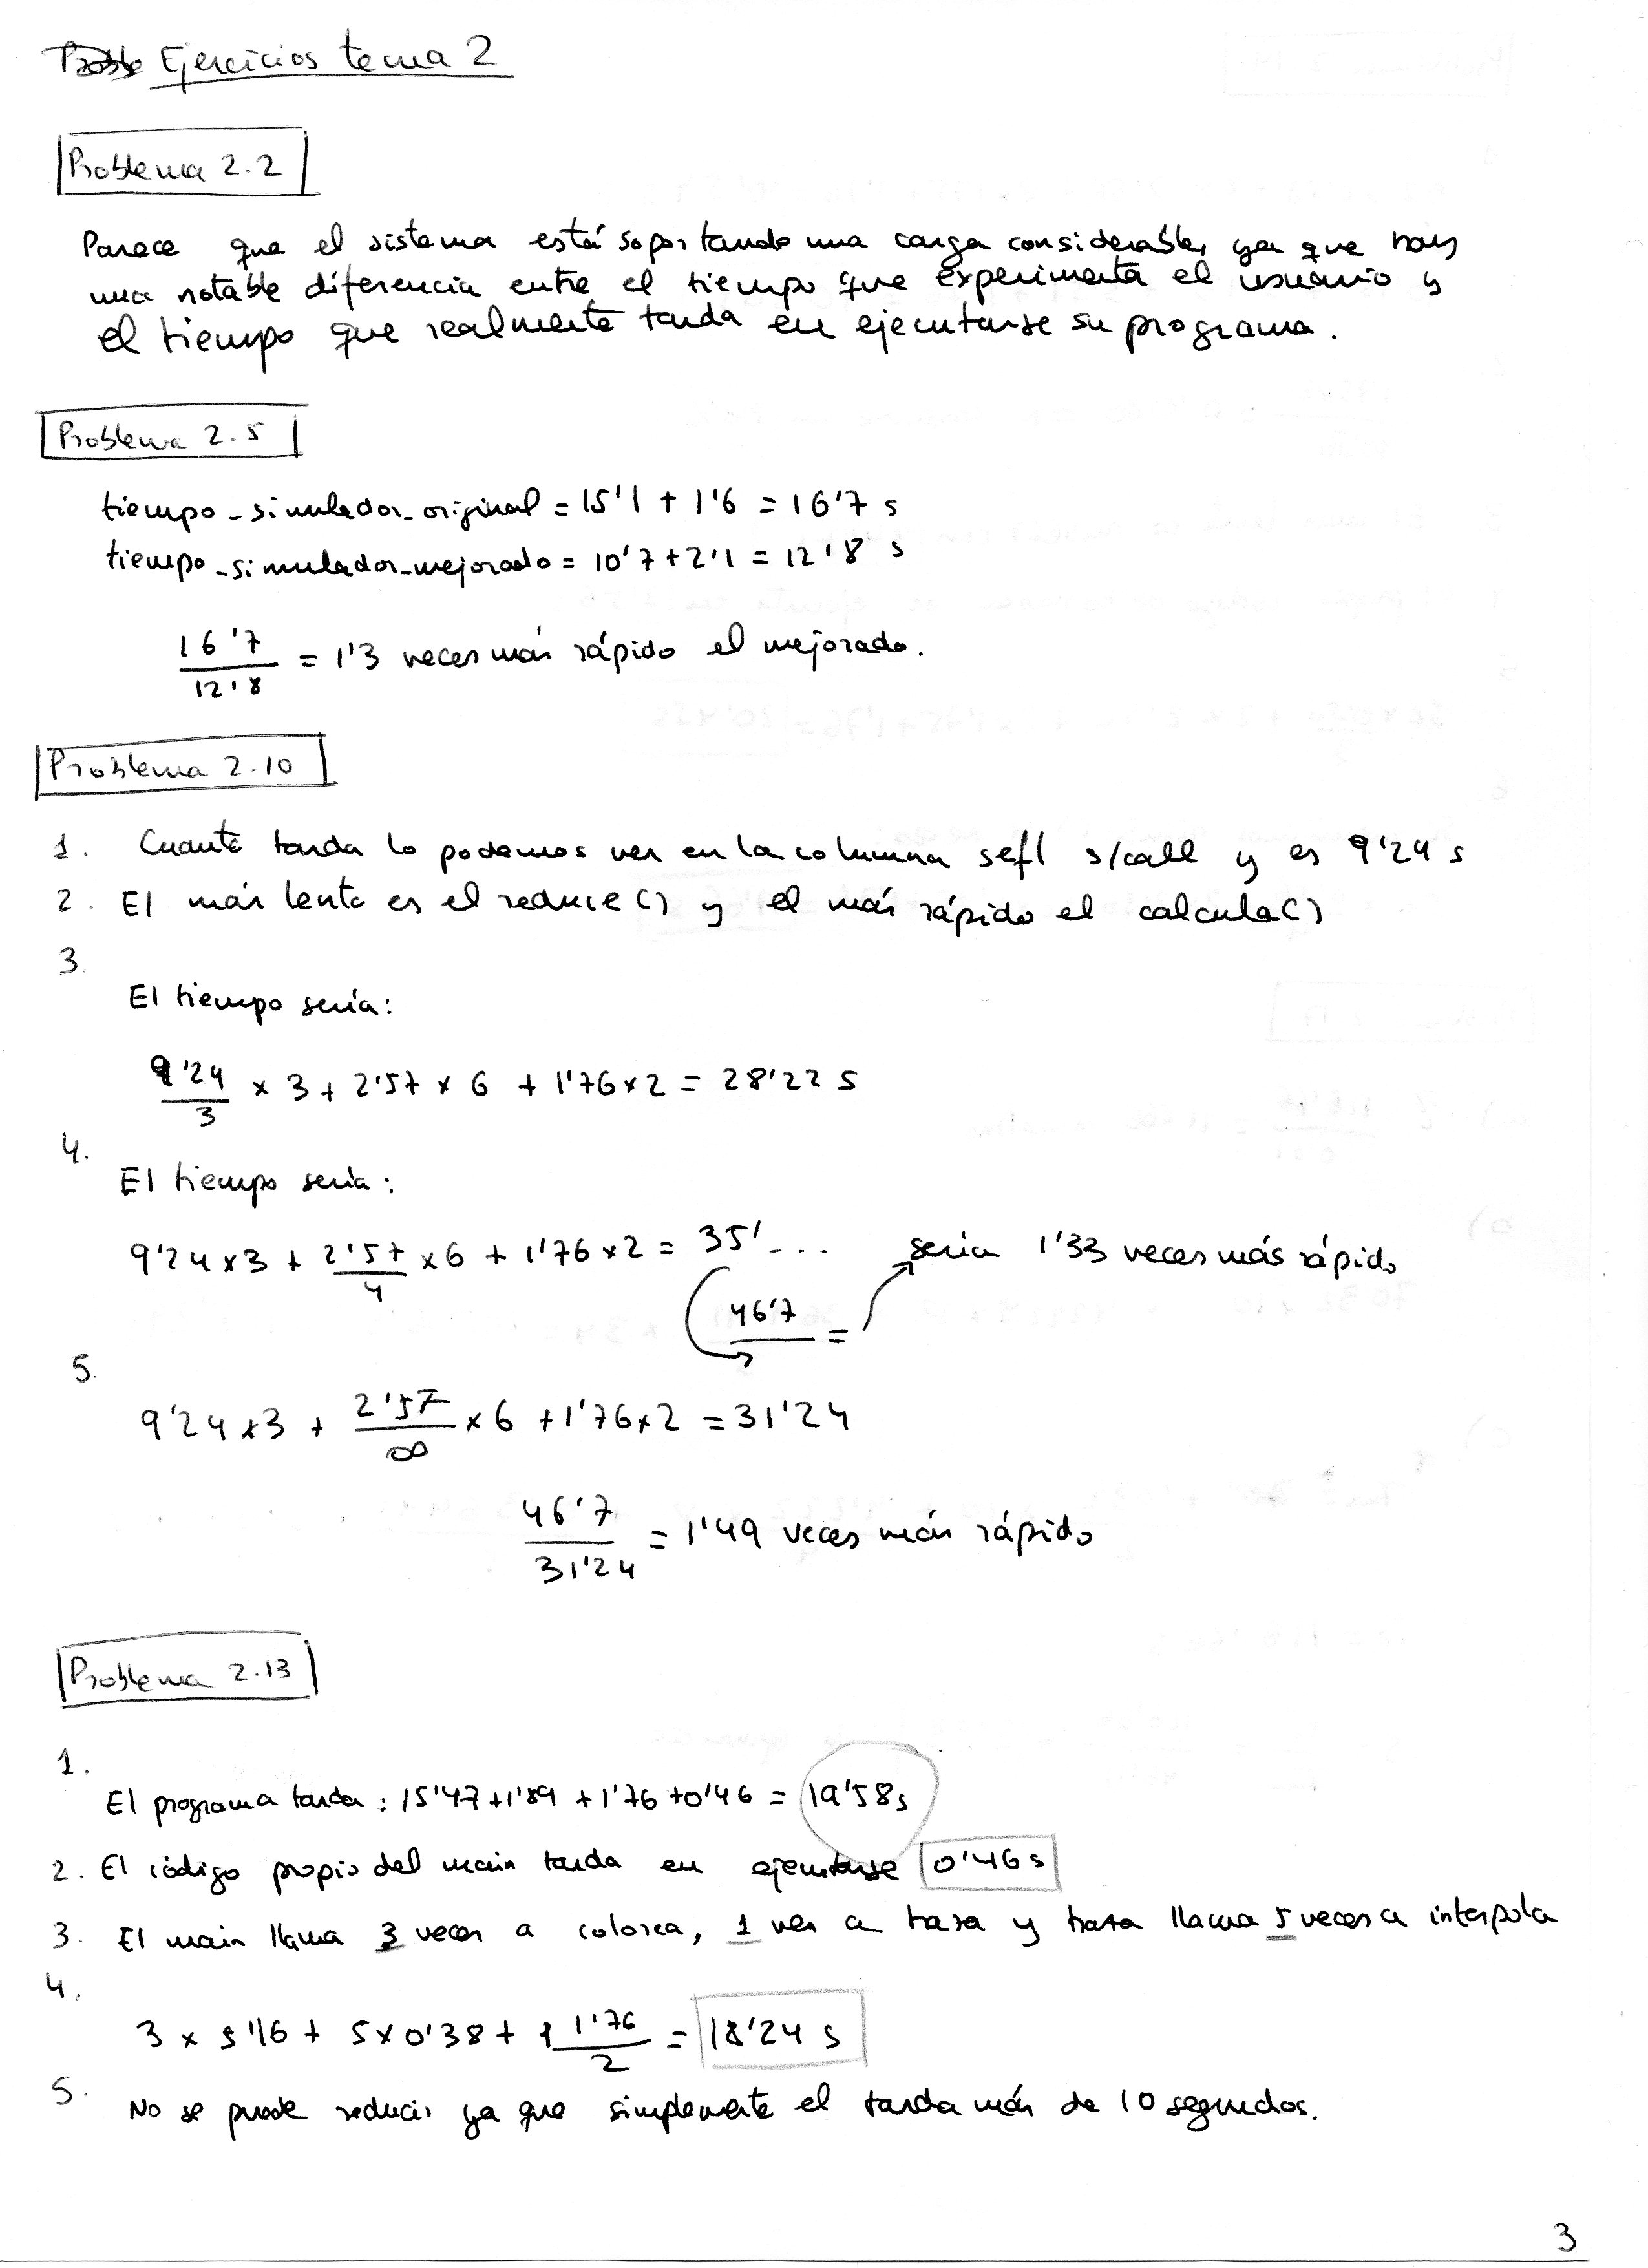 Ejercicios tema 2
Problema 2.2
Parece que el sistema está soportando una carga considerable, ya que hay
una notable diferencia entre el tiempo que experimenta el usuario y
el tiempo que realmente tarda en ejecutarse su programa.
Problema 2.5
tiempo_simulador_original = 15'1 + 1'6 = 16'7 s
tiempo_simulador_mejorado = 10'7 + 2'1 = 12'8 s
16'7 / 12'8 = 1'3 veces más rápido el mejorado.
Problema 2.10
1. Cuanto tarda lo podemos ver en la columna sefl s/call y es 9'24 s
2. El más lento es el reduce() y el más rápido el calcula()
3.
El tiempo sería:
9'24 / 3 × 3 + 2'57 × 6 + 1'76 × 2 = 28'22 s
4.
El tiempo sería:
9'24 × 3 + 2'57 / 4 × 6 + 1'76 × 2 = 35'... sería 1'33 veces más rápido
46'7 / =
5.
9'24 × 3 + 2'57 / ∞ × 6 + 1'76 × 2 = 31'24
46'7 / 31'24 = 1'49 veces más rápido
Problema 2.13
1.
El programa tarda: 15'47 + 1'89 + 1'76 + 0'46 = 19'58 s
2. El código propio del main tarda en ejecutarse 0'46 s
3. El main llama 3 veces a colorea, 1 vez a traza y traza llama 5 veces a interpola
4.
3 × 5'16 + 5 × 0'38 + 1 1'76 / 2 = 18'24 s
5.
No se puede reducir ya que simplemente el tarda más de 10 segundos.
3